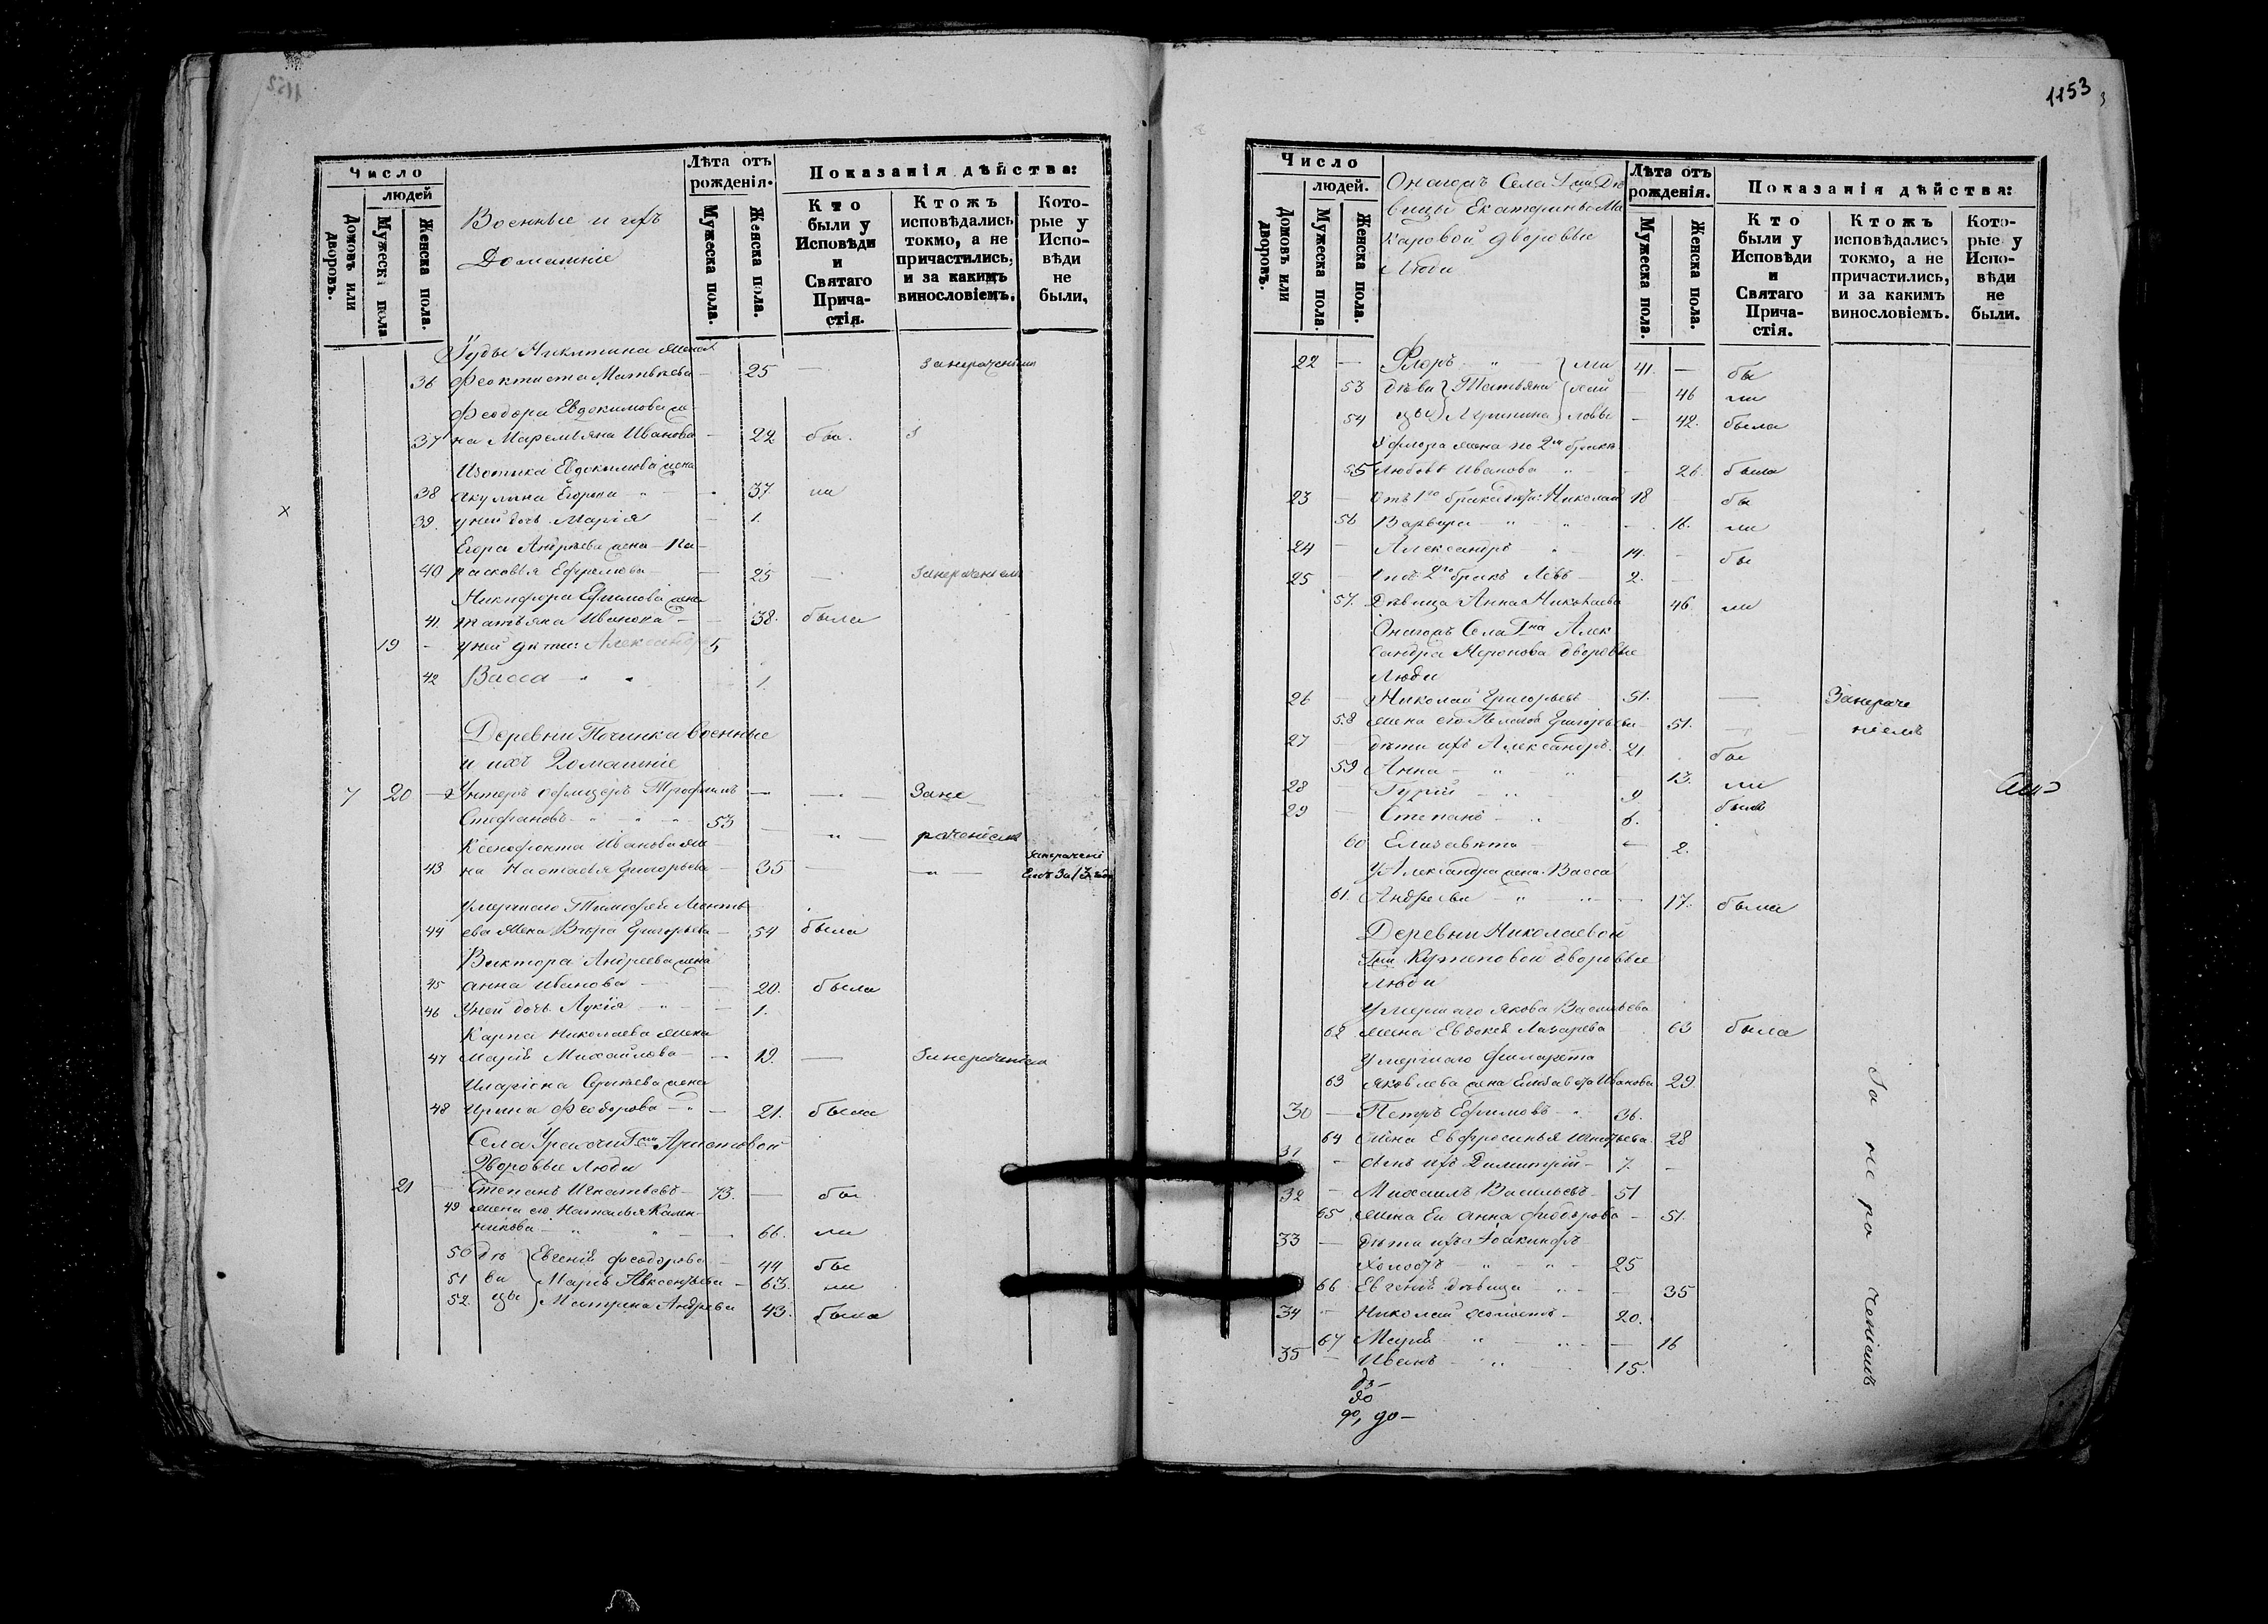 1152
Число
людей
Домовъ или дворовъ.
Мужеска пола
Женска пола.
Военные и ихъ
Домашніе
Лѣта отъ рожденія.
Мужеска пола.
Женска пола.
Показанія дѣйства:
Кто были у Исповѣди и Святаго Прича-стія.
Ктожъ исповѣдались токмо, а не причастились, и за какимъ винословіемъ.
Кото-рые у Испо-вѣди не были,
Никитина жена
36 Феоктиста Матвѣева — 25 —
Феодора Евдокимова же-
37 на Маремьяна Иванова — 22 бы.
Изотика Евдокимова жена
38 Акулина Егорова " — 37 ли
39. у ней дочь Марія — 1.
Егора Андреева жена Па-
40 расковья Ефремова — 25 — Занераченіем
Никифора Ефимова жена
41. Татьяна Иванова — 38. была
19 — у ней дети: Александръ 5
42 Васса " " 1.
Деревни Починка военные
и ихъ Домашніе
7 20 — Унтеръ офицеръ Трофимъ — — Зане
Стефановъ " " " 53 — " — раченіемъ
Ксенофонта Иванова же-
43 на Настасья Григорьева — 35 — " —
Умершаго Тимофея Леонть-
44 ева жена Вѣра Григорьева — 54 была
Виктора Андреева жена
45 Анна Иванова — 20. была
46 у ней дочь Лукія " — 1.
Карпа Николаева жена
47 Марія Михайлова — 19. — Занераченіем
Иларіона Сергѣева жена
48 Ирина Феодорова " — 21. была
Села Г Аристовой
Дворовые люди
21 — Степанъ Игнатьевъ — 73. — бы
49 жена его Наталья Калин-
никова " " — 66. ли
50 дѣ Евгенія Феодорова — 44 бы
51 ви Марія Авксентьева — 63. ли
52. цы Матрена Андреева 43. была
1153
Число
людей.
Домовъ или дворовъ.
Мужеска пола.
Женска пола.
Онагожъ Села Г Дѣ
вицы Екатерины Ма
каровой дворовые
Люди
Лѣта отъ рожденія.
Мужеска пола.
Женска пола.
Показанія дѣйства:
Кто были у Исповѣди и Святаго Прича-стія.
Ктожъ исповѣдались токмо, а не причастились, и за какимъ винословіемъ.
Кото-рые у Испо-вѣди не были.
22 — Флоръ " 41. — бы
53 дѣви Татьяна — 46 ли
54 цы — 42. была
У Флора жена по 2мъ бракѣ
55 Любовь Иванова " — 26. была
23 — Отъ 1го брака дѣти: Николай 18 — бы
56 Варвара " " — 16. ли
24 — Александръ " 14. — бы
25 — 2го брака Левъ — 2. —
57. Дѣвица Анна Николаева 46. ли
Онагожъ Села Гна Алек
сандра Миронова дворовые
Люди
26 — Николай Григорьевъ 51. — Занераче
58 жена его Григорьева — 51. — ніемъ
27 — дѣти ихъ Александръ 21 бы
59 Анна " " — 13. ли
28 — Гурій " 9
29 — Степанъ " 6. были
60 Елизавета — 2.
У Александра жена Васса
61. Андреева " " — 17. была
Деревни Николаевой
Гжи дворовые
люди
Умершаго Якова Васильева
62 жена Евдокія Лазарева 63 была
Умершаго Филарета
63 Яковлева жена Елизавета Иванова 29.
30 — Петръ Ефимовъ " 36.
64 жена Евфросинья Игнатьева. 28
31 — сынъ ихъ Димитрій — 7. —
32 — Михаилъ Васильевъ 51
65 жена Ея Анна Феодорова — 51.
33 — дѣти ихъ Іоакинфъ
Холостъ " " 25
66 Евгенія дѣвица " — 35
34 " Николай холостъ — 20.
67 Марія " " — 16
35 — Иванъ " — 15.
За не ра ченіемъ